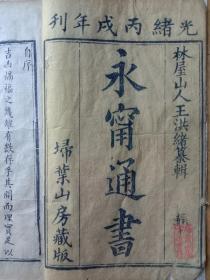 光緒丙戌年刊
林屋山人王洪緒纂輯
永甯通書
埽葉山房藏版
自序
吉凶禍福之幾雖有數存乎其間而理實足以